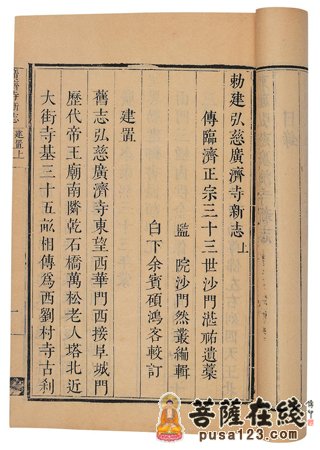 勅建弘慈廣濟寺新志上
傳臨濟正宗三十三世沙門湛祐遺藁
監院沙門然叢編輯
白下余賓碩鴻客較訂
建置
舊志弘慈廣濟寺東望西華門西接阜城門
歷代帝王廟南隣乾石橋萬松老人塔北近
大街寺基三十五畝相傳爲西劉村寺古刹
廣濟寺新志 建置上 一
菩薩在綫
pusa123.com